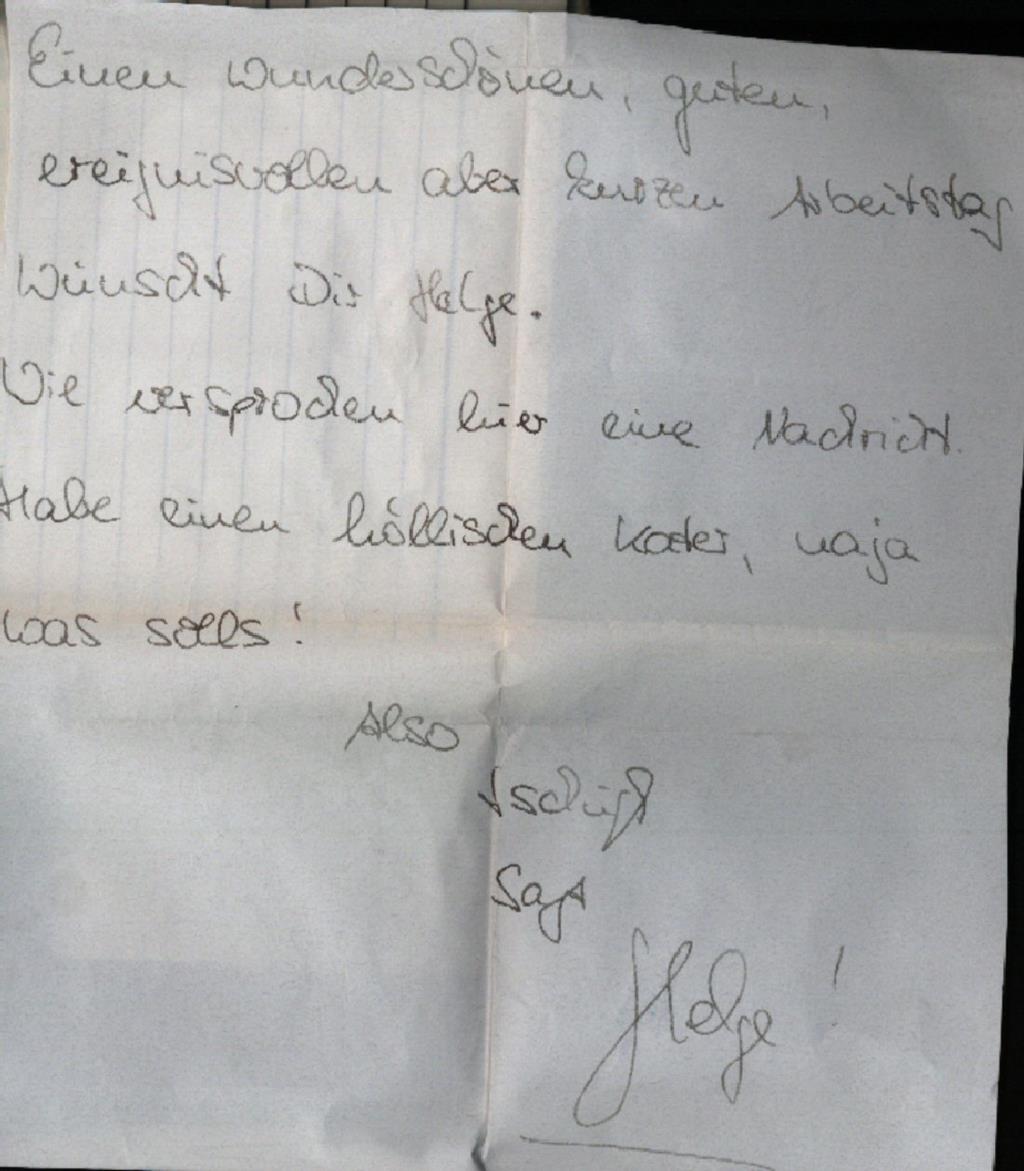 Einen wunderschönen, guten,
ereignisvollen aber kurzen Arbeitstag
wünscht Dir Helge.
Wie versprochen hier eine Nachricht.
Habe einen höllischen Kater, naja
was solls!
Also
tschüß
Sagt
Helge!